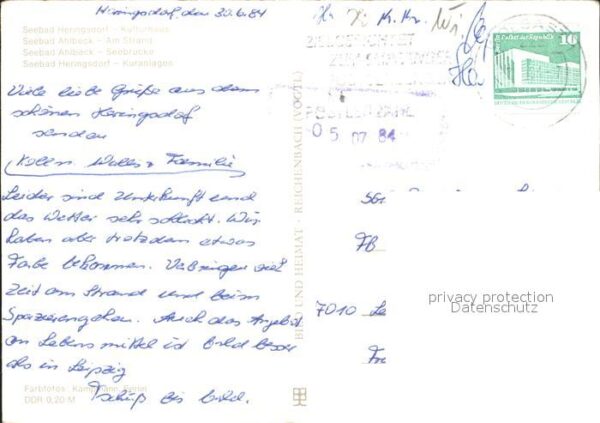 Heringsdorf, den 30.6.84
Seebad Heringsdorf - Kulturhaus
Seebad Ahlbeck - Am Strand
Seebad Ahlbeck - Seebrücke
Seebad Heringsdorf - Kuranlagen
Viele liebe Grüße aus dem
schönen Heringsdorf
senden
Familie
Leider sind Unterkunft und
das Wetter sehr schlecht. Wir
haben aber trotzdem etwas
Farbe bekommen. Verbringen viel
Zeit am Strand und beim
Spazierengehen. Auch das Angebot
an Lebensmittel ist besser
als in Leipzig
Tschüß bis bald.
Farbfotos: Kampmann, Berlin
DDR 0,20 M
BILD UND HEIMAT · REICHENBACH (VOGTL)
K. Kr.
05 07 84
10
7010 Le
privacy protection
Datenschutz